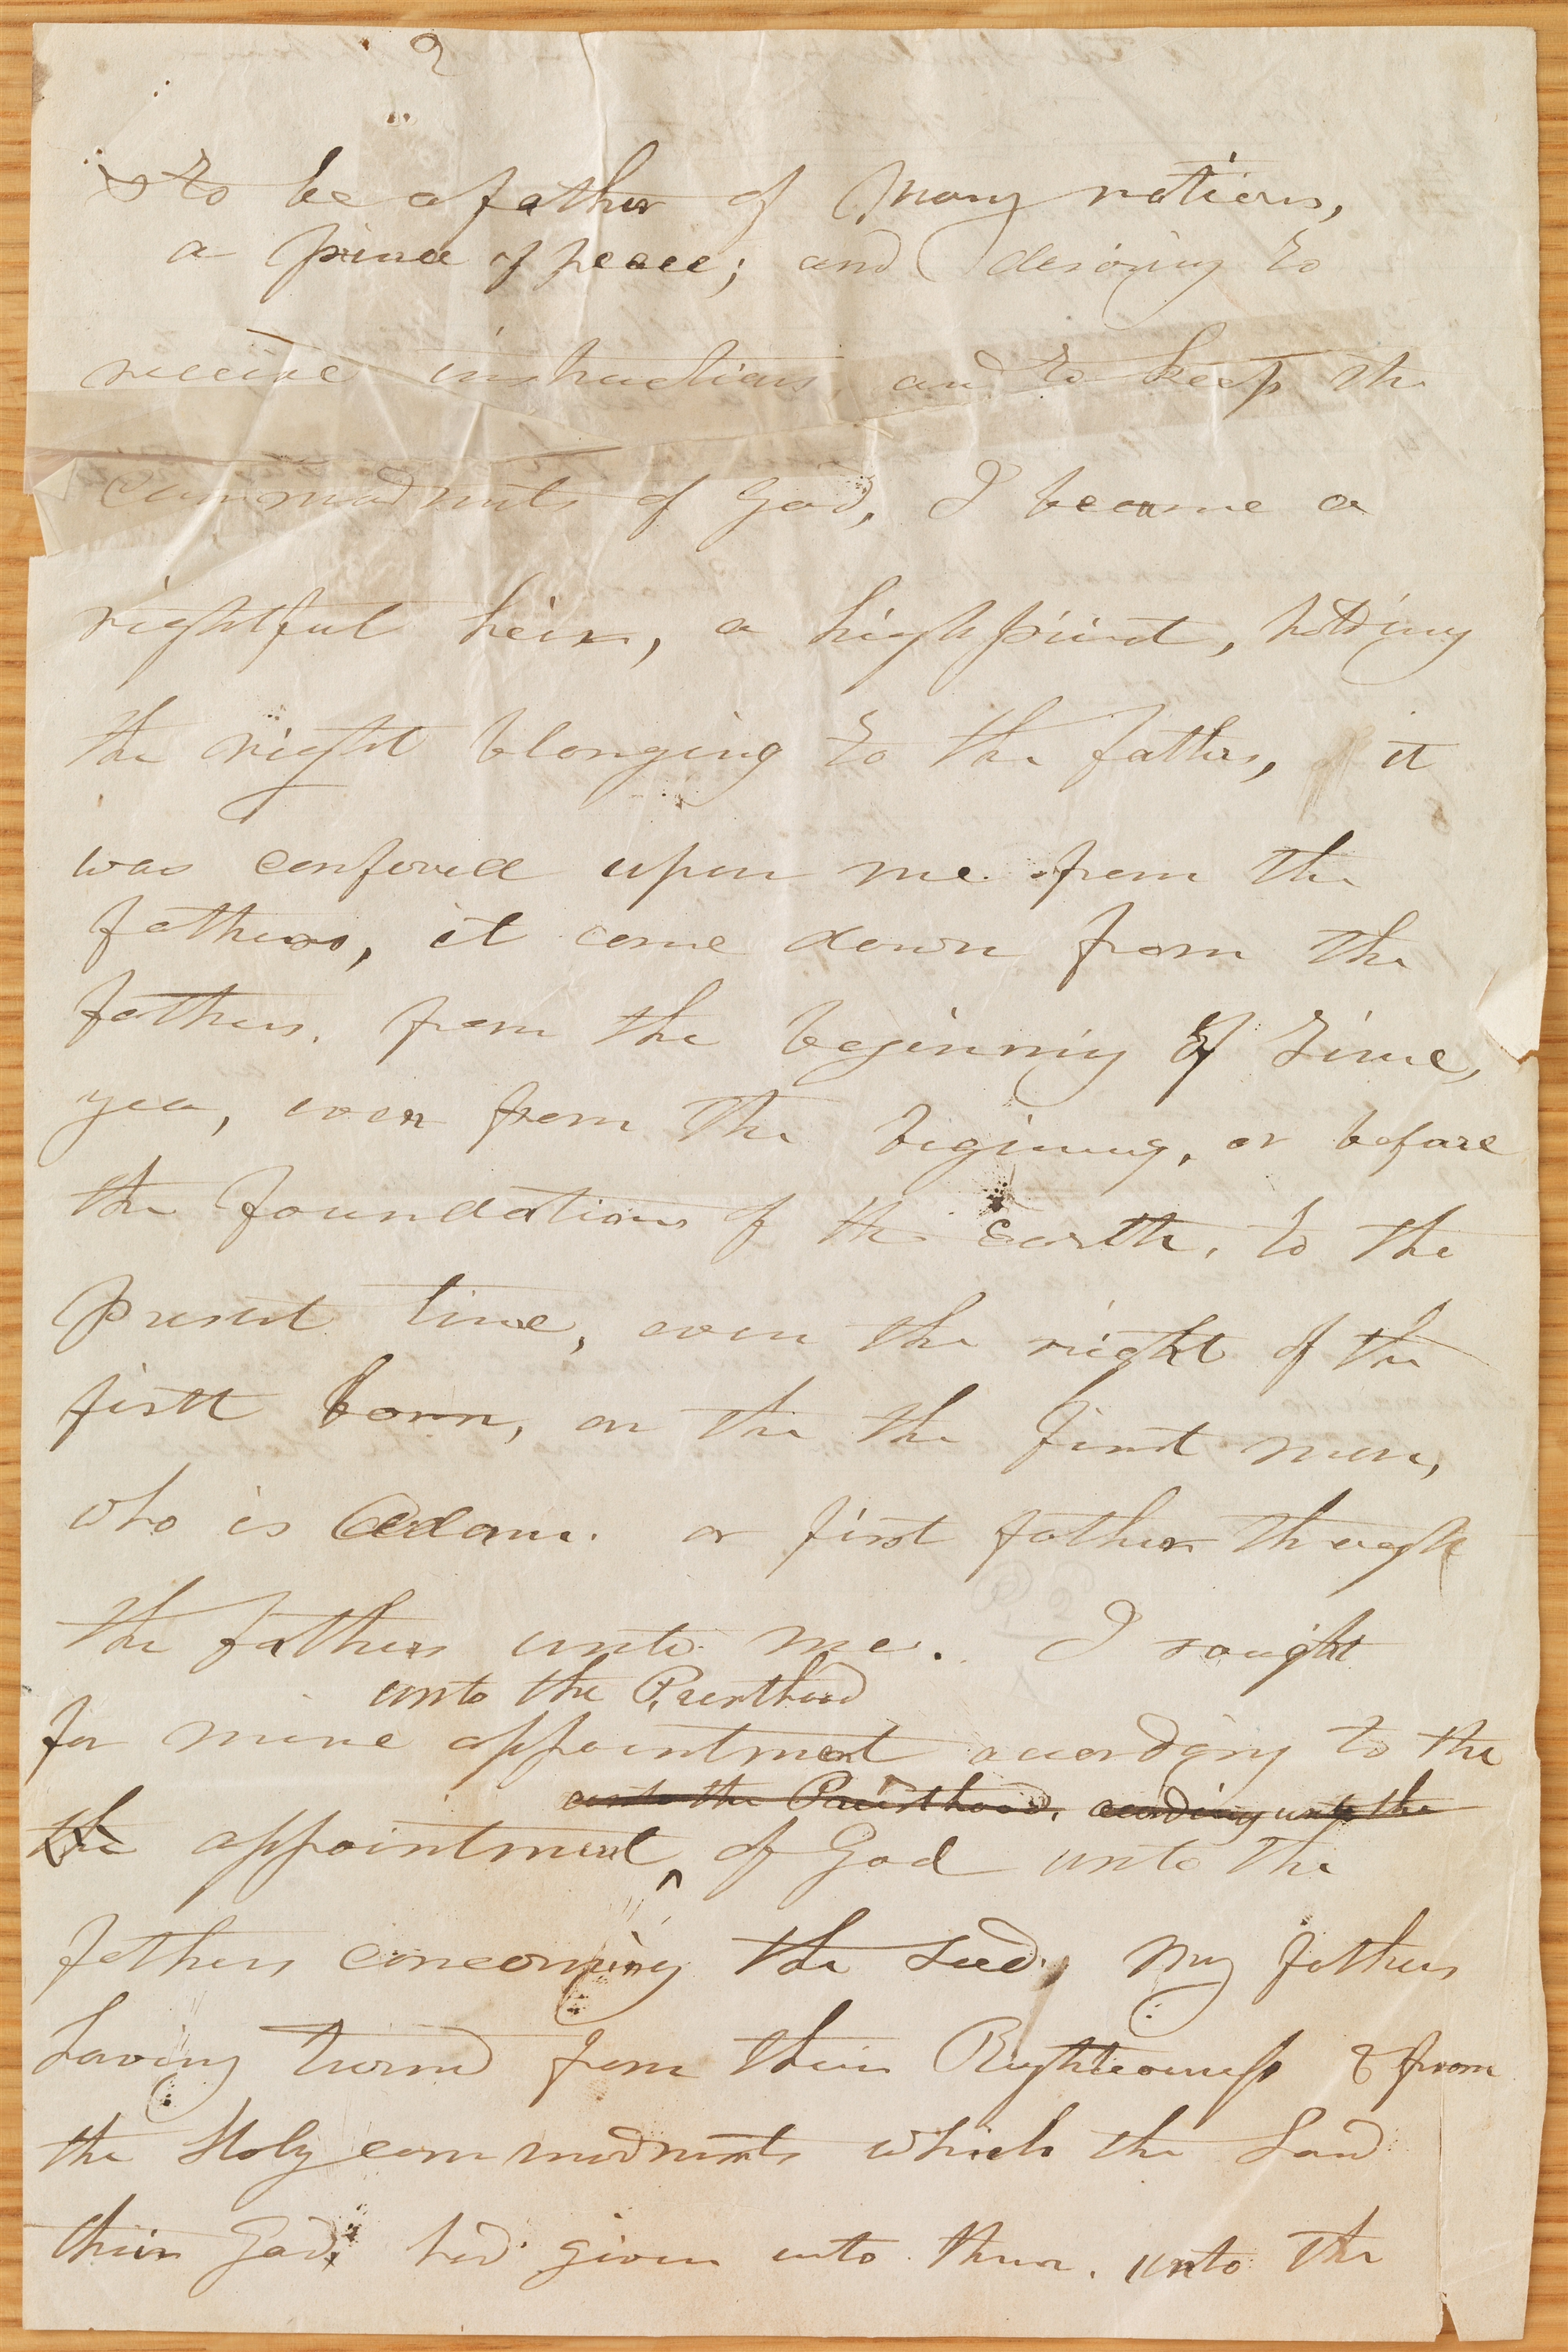 2
& to be a father of many nations,
a prince of peace; and desiring to
receive instructions, and to keep the
commadments of God, I became a
rightful heir, a high priest, holding
the right blonging to the fathers, it
was confered upon me from the
fathers, it come down from the
fathers. from the beginning of time,
yea, even from the begining, or before
the foundations of the earth, to the
present time, even the right of the
firstt born, on the the first man,
who is Adam. or first father through
the fathers unto me. I sought
unto the Priesthood
for mine appointment according to the
unto the Priesthood, acording unto the
the appointment of God unto the
fathers concerning the seed, My fathers
having turned from their Righteousness & from
the Holy commadments which the Lord
their God, had given unto them. unto the